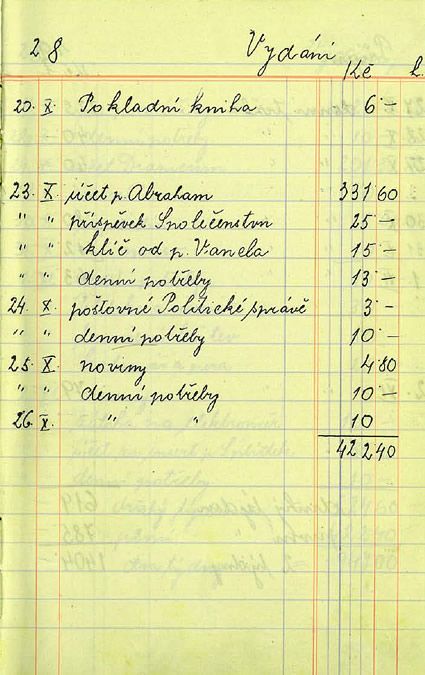 28 Vydání
Kč h.
20. X. Pokladní kniha 6 –
23. X. účet p. Abraham 331 60
" " příspěvek Společenstvu 25 –
" " klíč od p. Vaněla 15 –
" " denní potřeby 13 –
24. X. poštovné Politické správě 3 –
" " denní potřeby 10 –
25. X. noviny 4 80
" " denní potřeby 10 –
26. X. " " 10
422 40